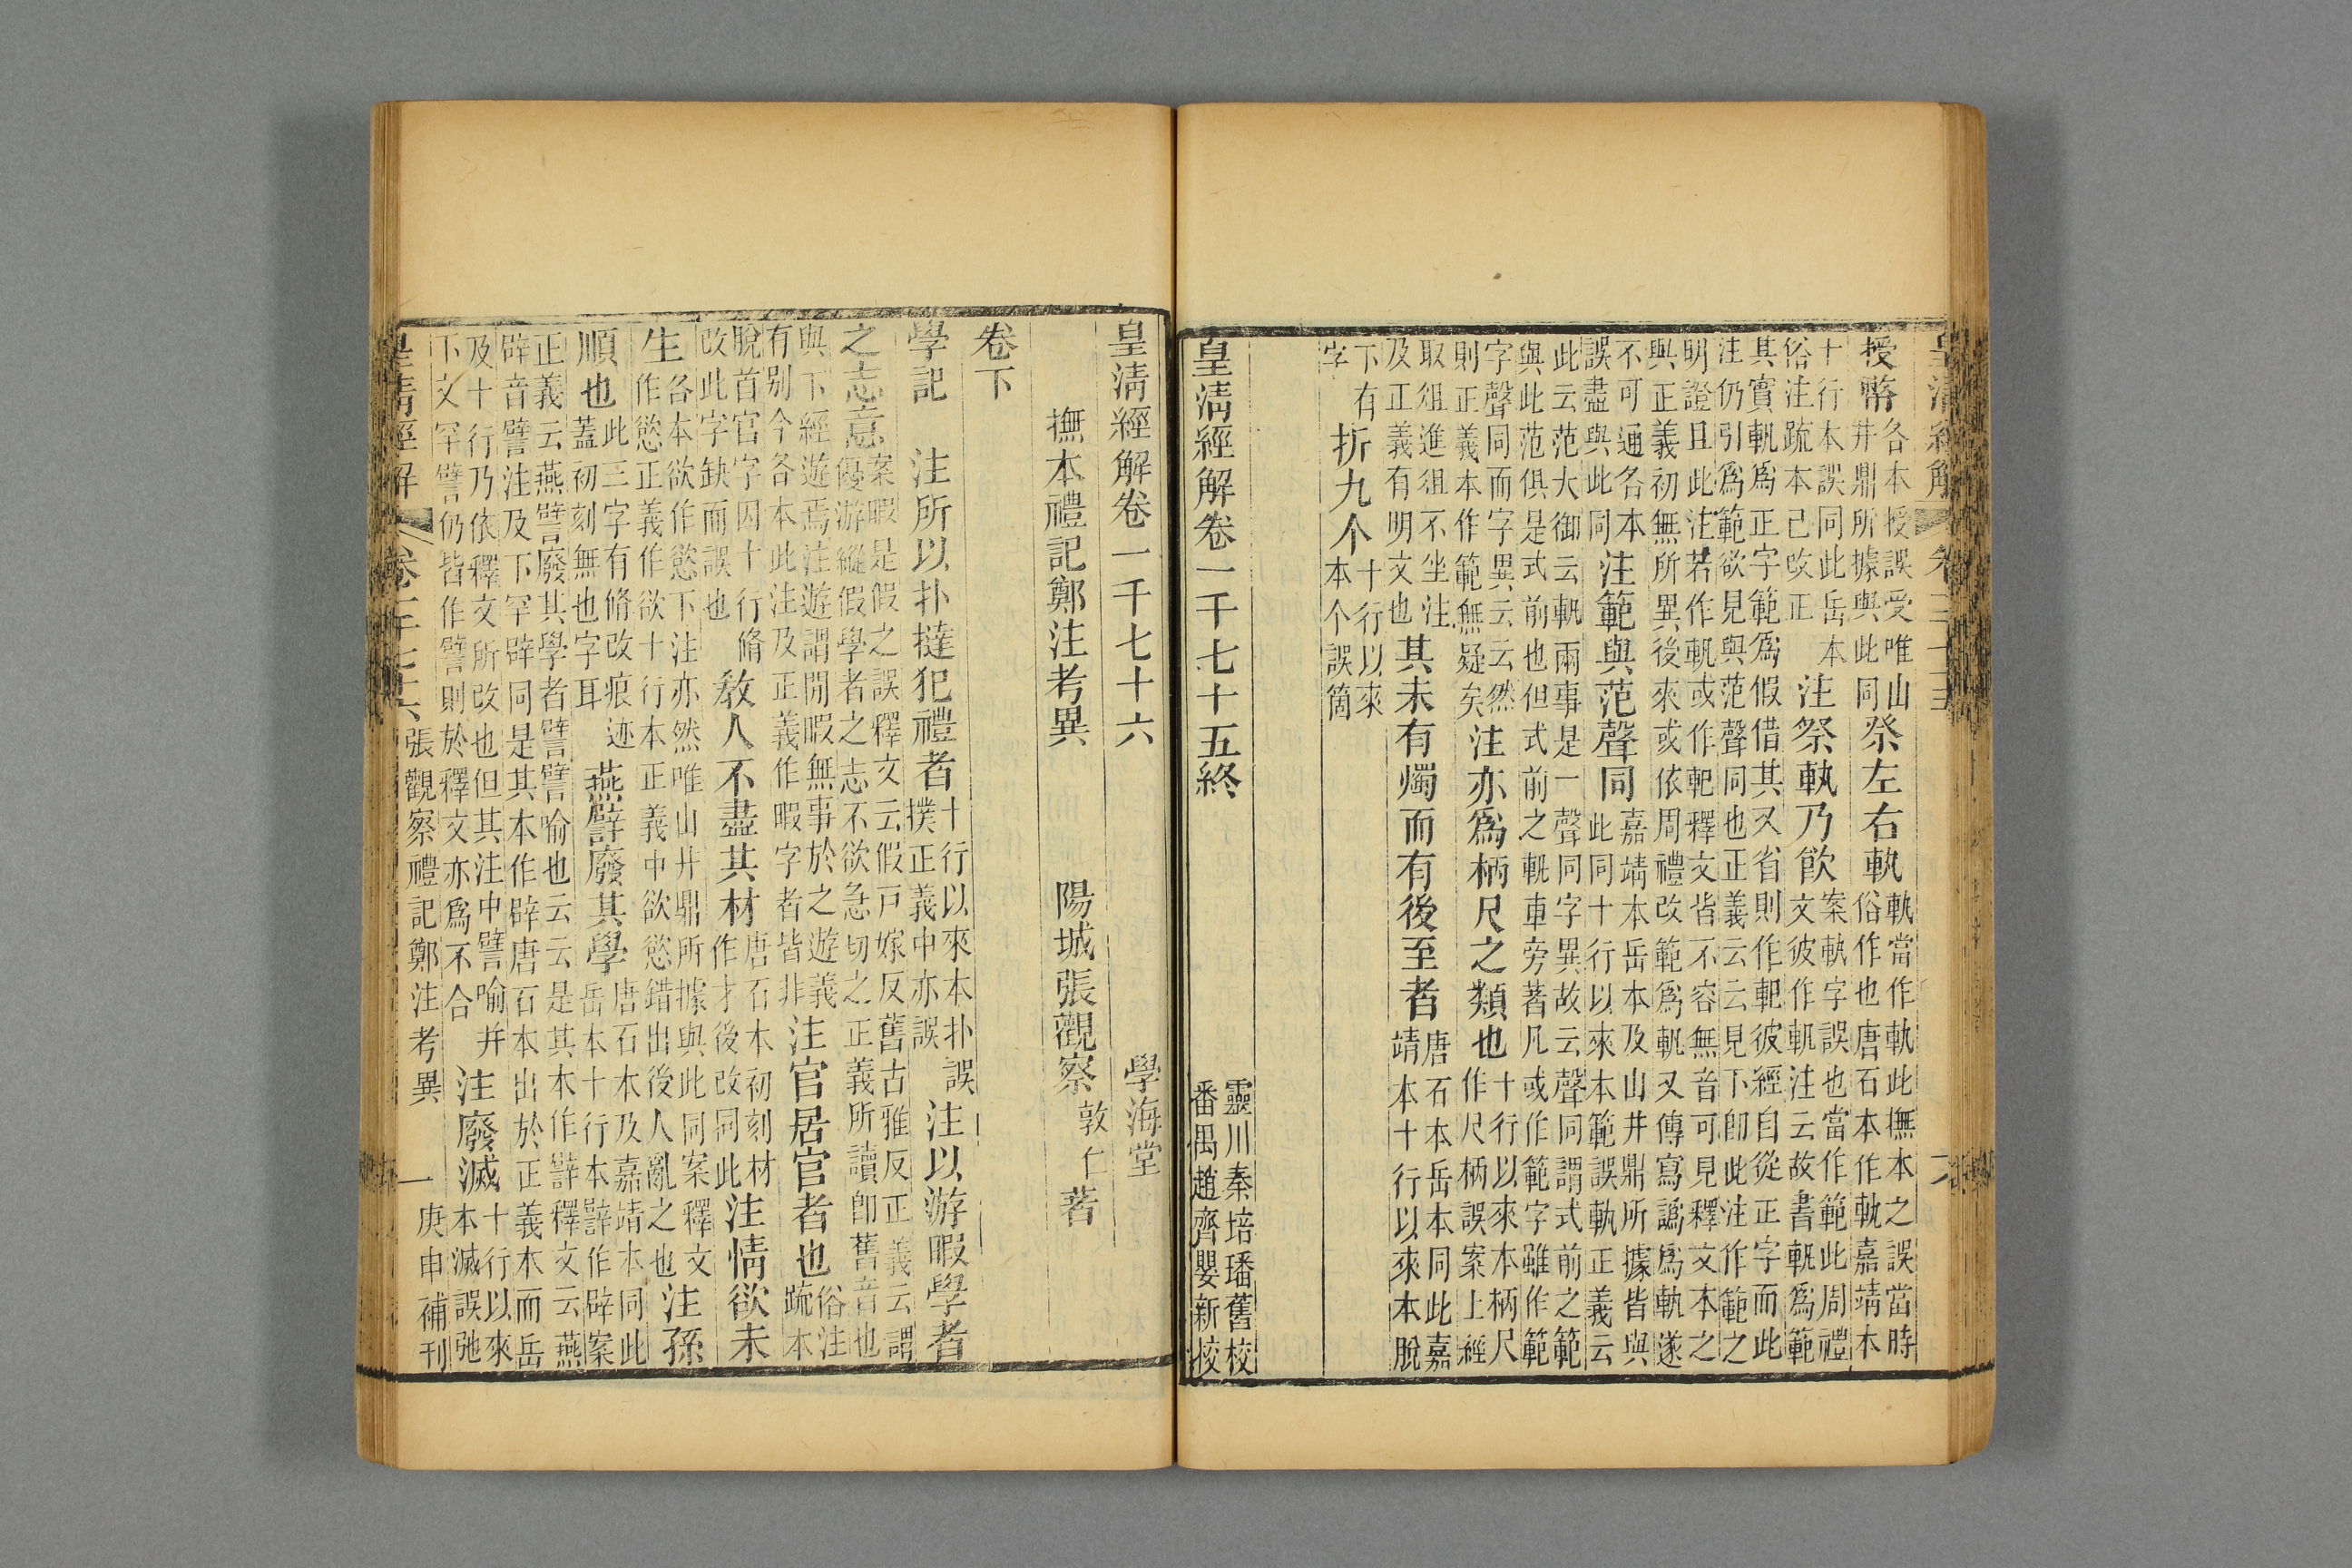 皇清經解
授幣各本授誤受唯山
井鼎所據與此同祭左右軌軌當作軌此撫本之誤當時
俗作也唐石本作軌嘉靖本
十行本誤同此岳本
俗注疏本已改正注祭軌乃飮案軌字誤也當作範此周禮
文彼作軓注云故書軓爲範
其實軓爲正字範爲假借其又省則作軋彼經自從正字而此
注仍引爲範欲見與范聲同也正義云云見下卽此注作範之
明證且此注若作軓或作軋釋文皆不容無音可見釋文本之
與正義初無所異後來或依周禮改範爲軓又傳寫譌爲軌遂
不可通各本
誤盡與此同注範與范聲同嘉靖本岳本及山井鼎所據皆與
此同十行以來本範誤軌正義云
此云范大御云軓兩事是一聲同字異故云聲同謂式前之範
與此范俱是式前也但式前之軓車旁著凡或作範字雖作範
字聲同而字異云云然
則正義本作範無疑矣注亦爲柄尺之類也十行以來本柄尺
作尺柄誤案上經
取俎進俎不坐注
及正義有明文也其未有燭而有後至者唐石本岳本同此嘉
靖本十行以來本脫
下有
字折九个十行以來
本个誤箇
皇清經解卷一千七十五終
靈川秦培璠舊校
番禺趙齊嬰新挍
皇清經解卷一千七十六
學海堂
撫本禮記鄭注考異
陽城張觀察敦仁著
卷下
學記　注所以扑撻犯禮者十行以來本扑誤
撲正義中亦誤注以游暇學者
之志意案暇是假之誤釋文云假戸嫁反舊古雅反正義云謂
優游縱假學者之志不欲急切之正義所讀卽舊音也
與下經遊焉注遊謂閒暇無事於之遊義
有别今各本此注及正義作暇字者皆非注官居官者也俗注
疏本
脫首官字因十行脩
改此字缺而誤也敎人不盡其材唐石本初刻材
作才後改同此注情欲未
生各本欲作慾下注亦然唯山井鼎所據與此同案釋文
作慾正義作欲十行本正義中欲慾錯出後人亂之也注孫
順也此三字有脩改痕迹
蓋初刻無也字耳燕譬廢其學唐石本及嘉靖本同此
岳本十行本譬作辟案
正義云燕譬廢其學者譬譬喻也云云是其本作譬釋文云燕
辟音譬注及下罕辟同是其本作辟唐石本出於正義本而岳
及十行乃依釋文所改也但其注中譬喻幷
下文罕譬仍皆作譬則於釋文亦爲不合注廢滅十行以來
本滅誤弛
皇清經解
張觀察禮記鄭注考異
一
庚申補刊